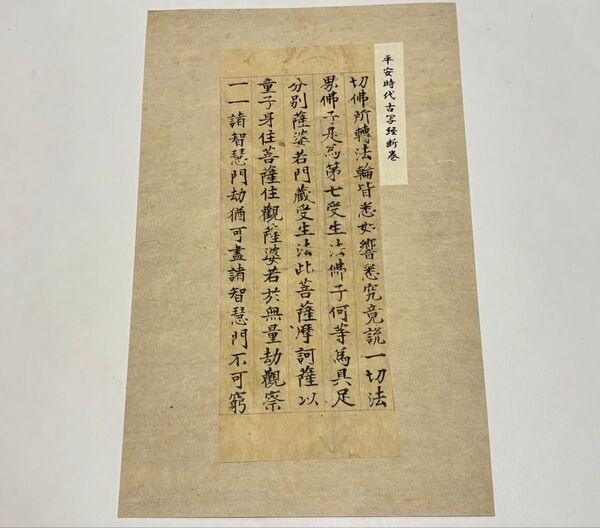 平安時代古写経断巻
切佛所轉法輪皆悉如響悉究竟説一切法
界佛子是為第七受生法佛子何等為具足
分別薩婆若門藏受生法此菩薩摩訶薩以
童子身住菩薩住觀薩婆若於無量劫觀察
一一諸智慧門劫猶可盡諸智慧門不可窮